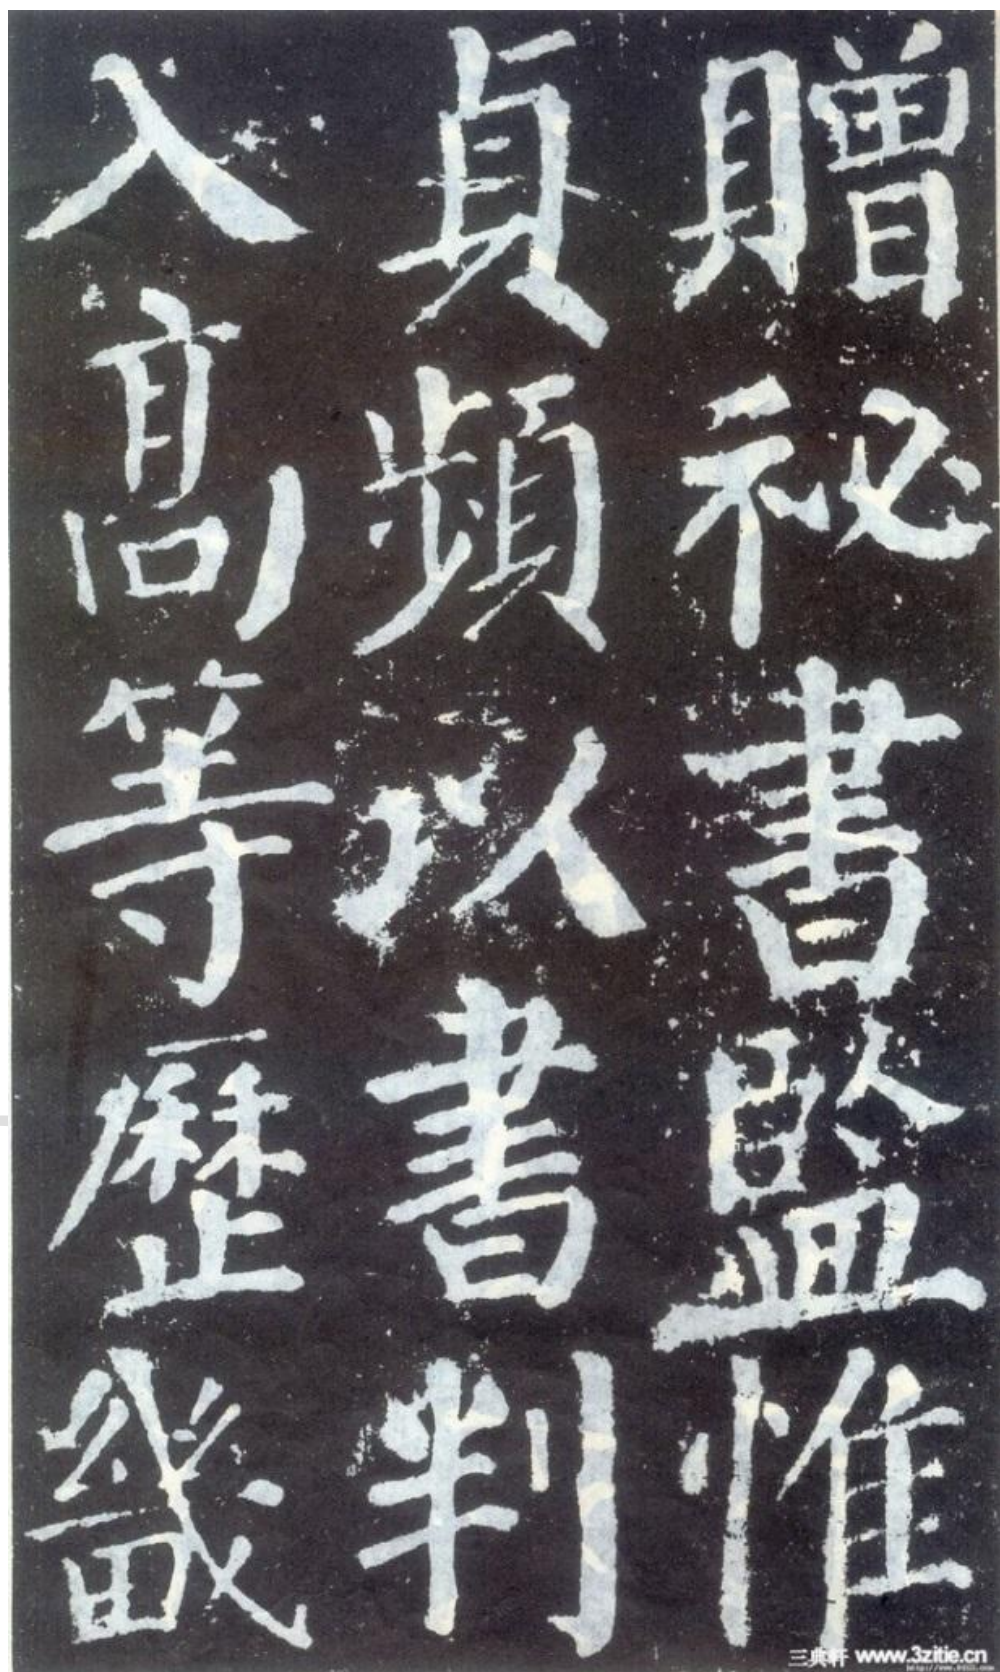 贈祕書監惟
貞頻以書判
入髙等歷畿
三典轩 www.3zitie.cn